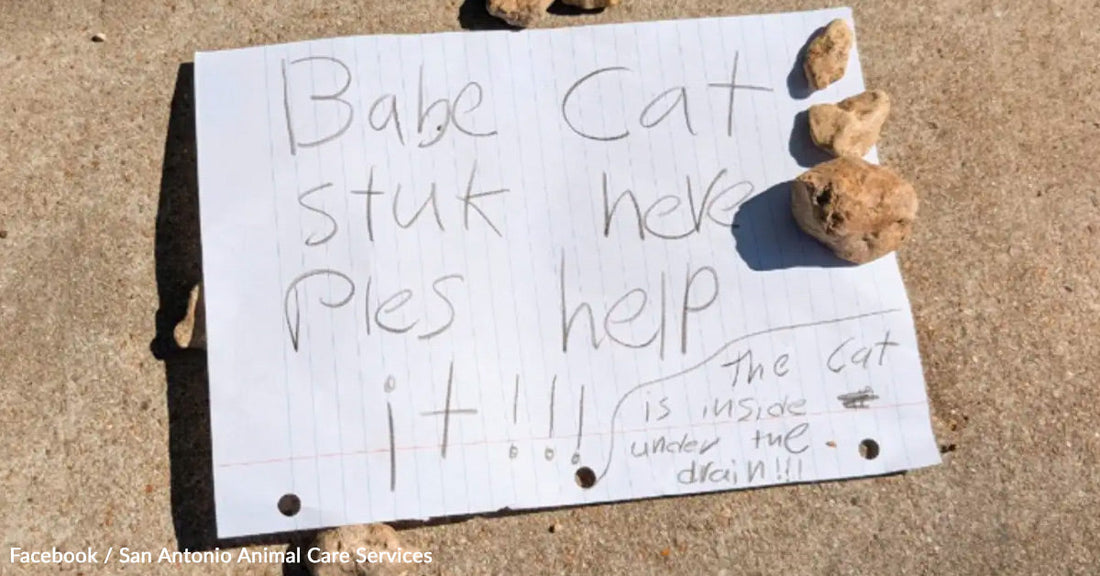 Babe Cat
stuk here
Ples help
it !!!
The Cat
is inside
under the
drain!!!
Facebook / San Antonio Animal Care Services